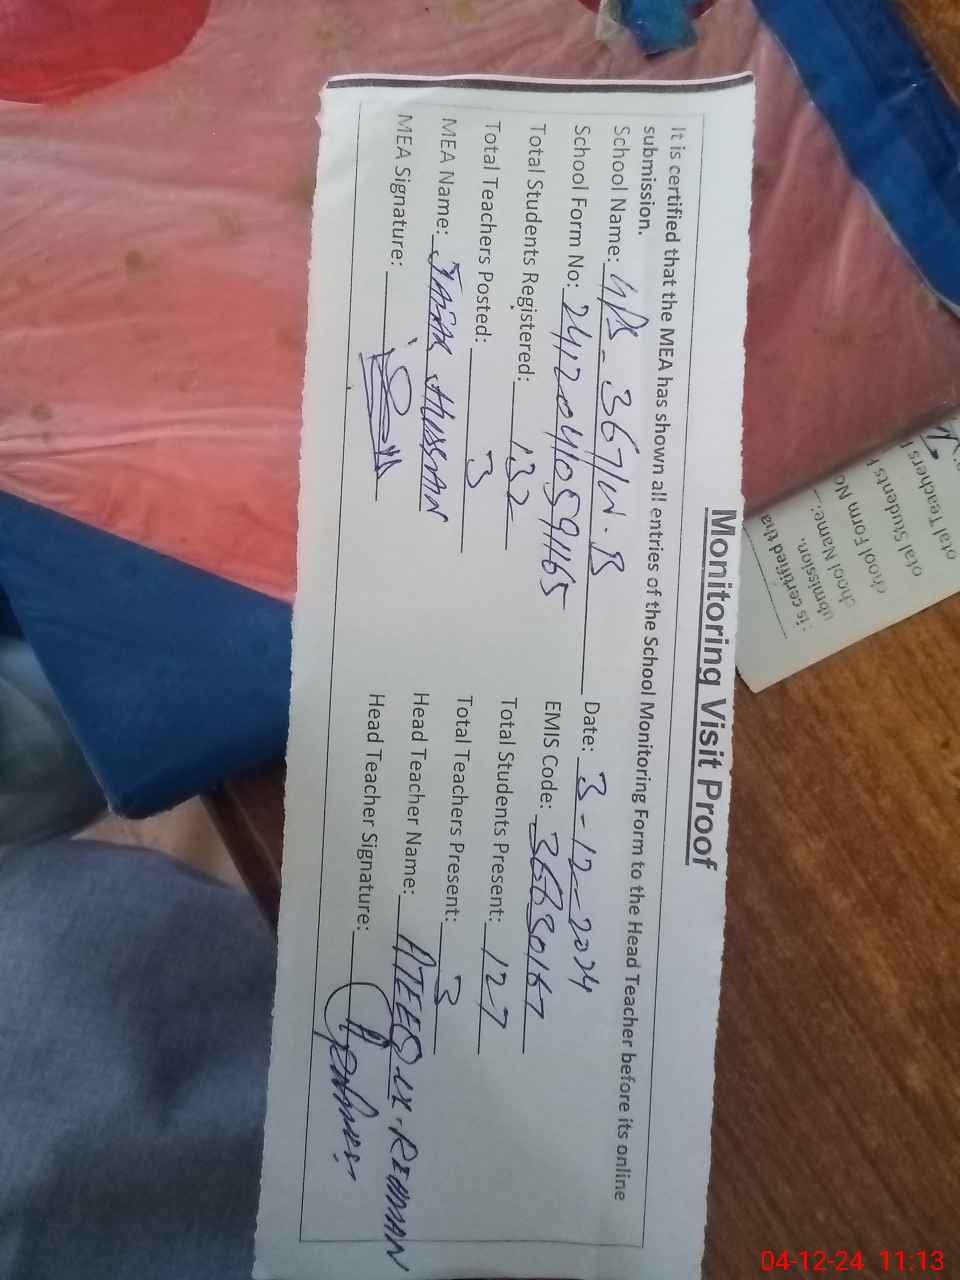 Monitoring Visit Proof
It is certified that the MEA has shown all entries of the School Monitoring Form to the Head Teacher before its online
submission.
School Name: GPS - 367/W.B Date: 3-12-2024
School Form No: 24120410591165 EMIS Code: 36630167
Total Students Registered: 132 Total Students Present: 127
Total Teachers Posted: 3 Total Teachers Present: 3
MEA Name: HUSSAIN Head Teacher Name: ATEEQ-UR-REHMAN
MEA Signature: Head Teacher Signature:
is certified tha
ubmission.
chool Name:
chool Form No
otal Students
otal Teachers
04-12-24 11:13